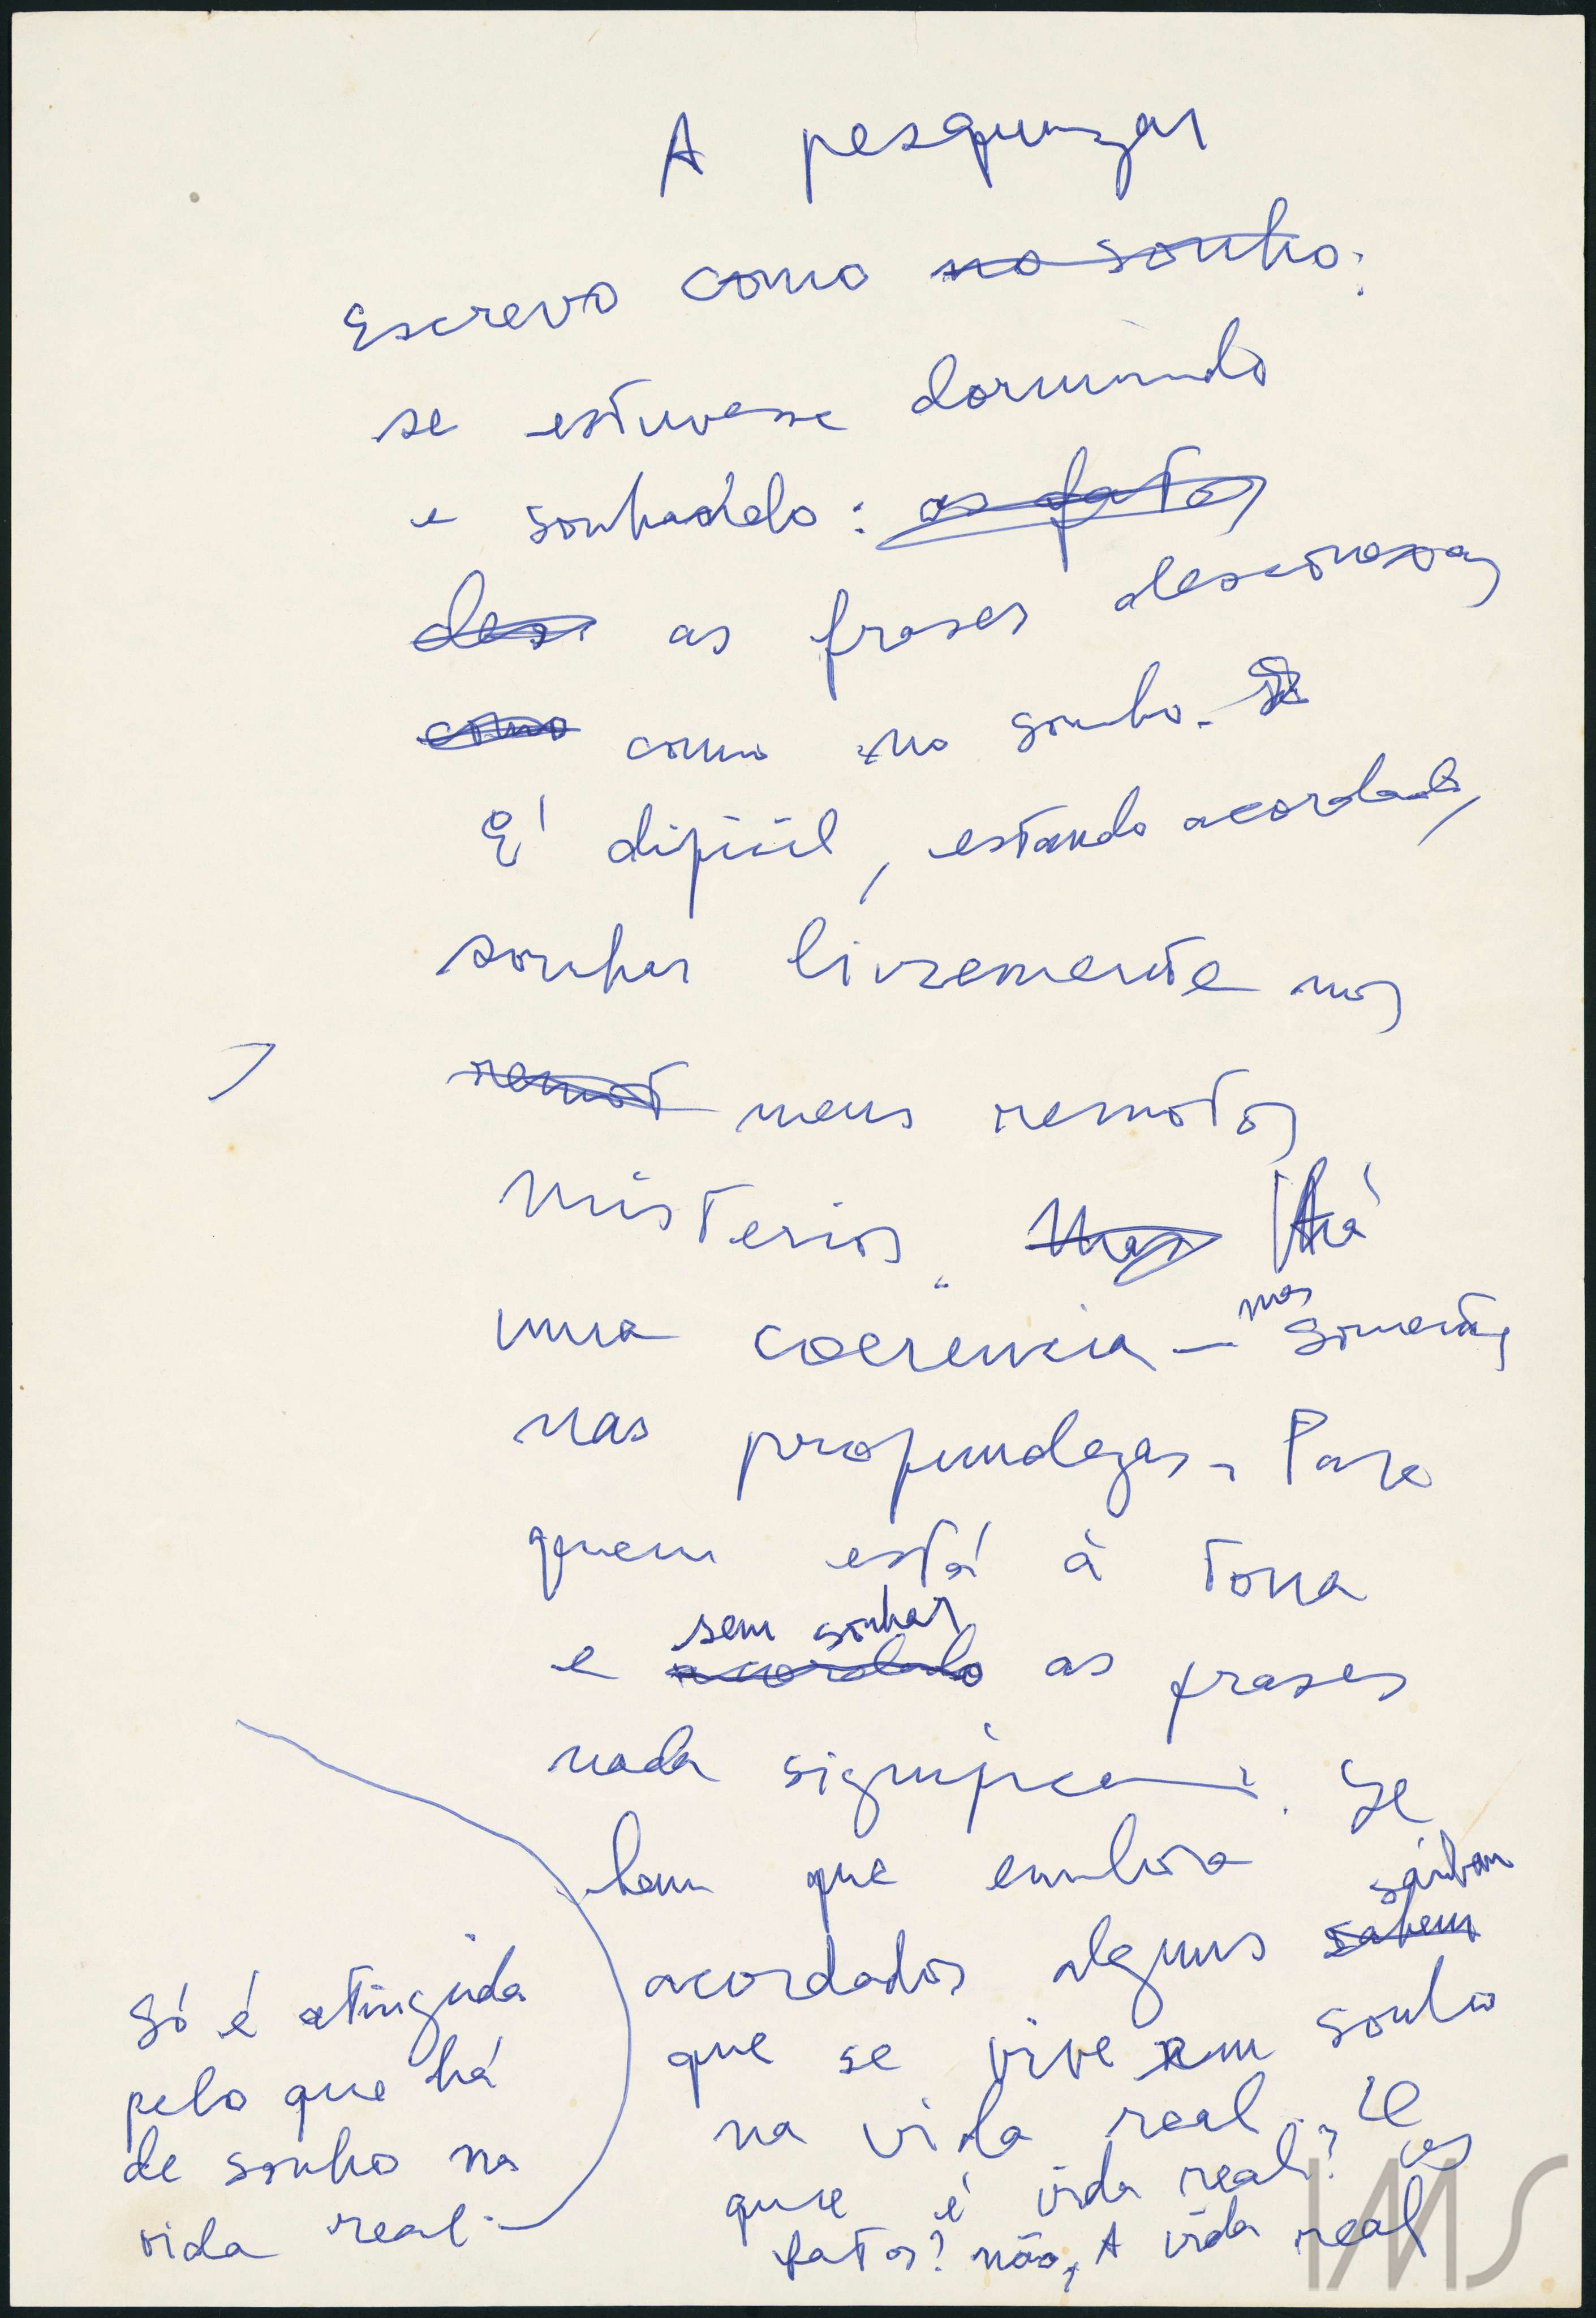 A pesquizar
Escrevo como no sonho:
se estivesse dormindo
e sonhado: os fatos
des as frases desconexas
como como no sonho.
É difícil, estando acordado,
sonhar livremente nos
remot meus remotos
misterios. Mas Há
uma coerencia — mas somente
nas profundezas. Para
quem está à tona
e sem sonhar
acordado as frases
nada significam. Se
bem que embora
saibam
acordados alguns sabem
que se vive em sonho
na vida real. O
que é vida real? os
fatos? não, A vida real
Só é atingida
pelo que há
de sonho na
vida real.
IMS